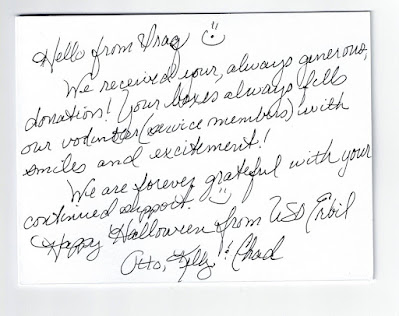 Hello from Iraq
We received your, always generous,
donation! Your boxes always fills
our volunteer (service members) with
smiles and excitement!
We are forever grateful with your
continued support.
Happy Halloween from USO Erbil
Otto, Kelly & Chad